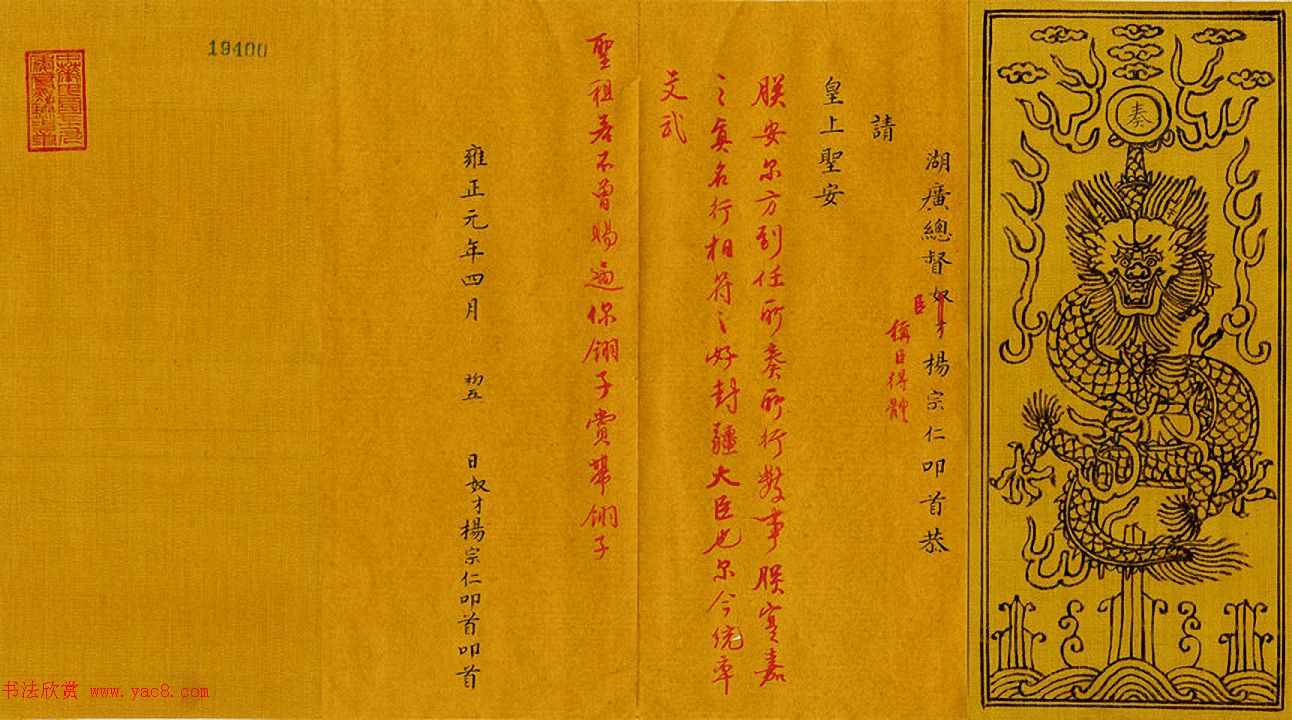 奏
湖廣總督奴才楊宗仁叩首恭
臣
稱臣得體
請
皇上聖安
朕安尔方到任所奏所行數事朕寔嘉
之真名行相符之好封疆大臣也尔今統率
文武
聖祖若不曾賜過你翎子賞帶翎子
雍正元年四月 初五 日奴才楊宗仁叩首叩首
19400
书法欣赏 www.yac8.com